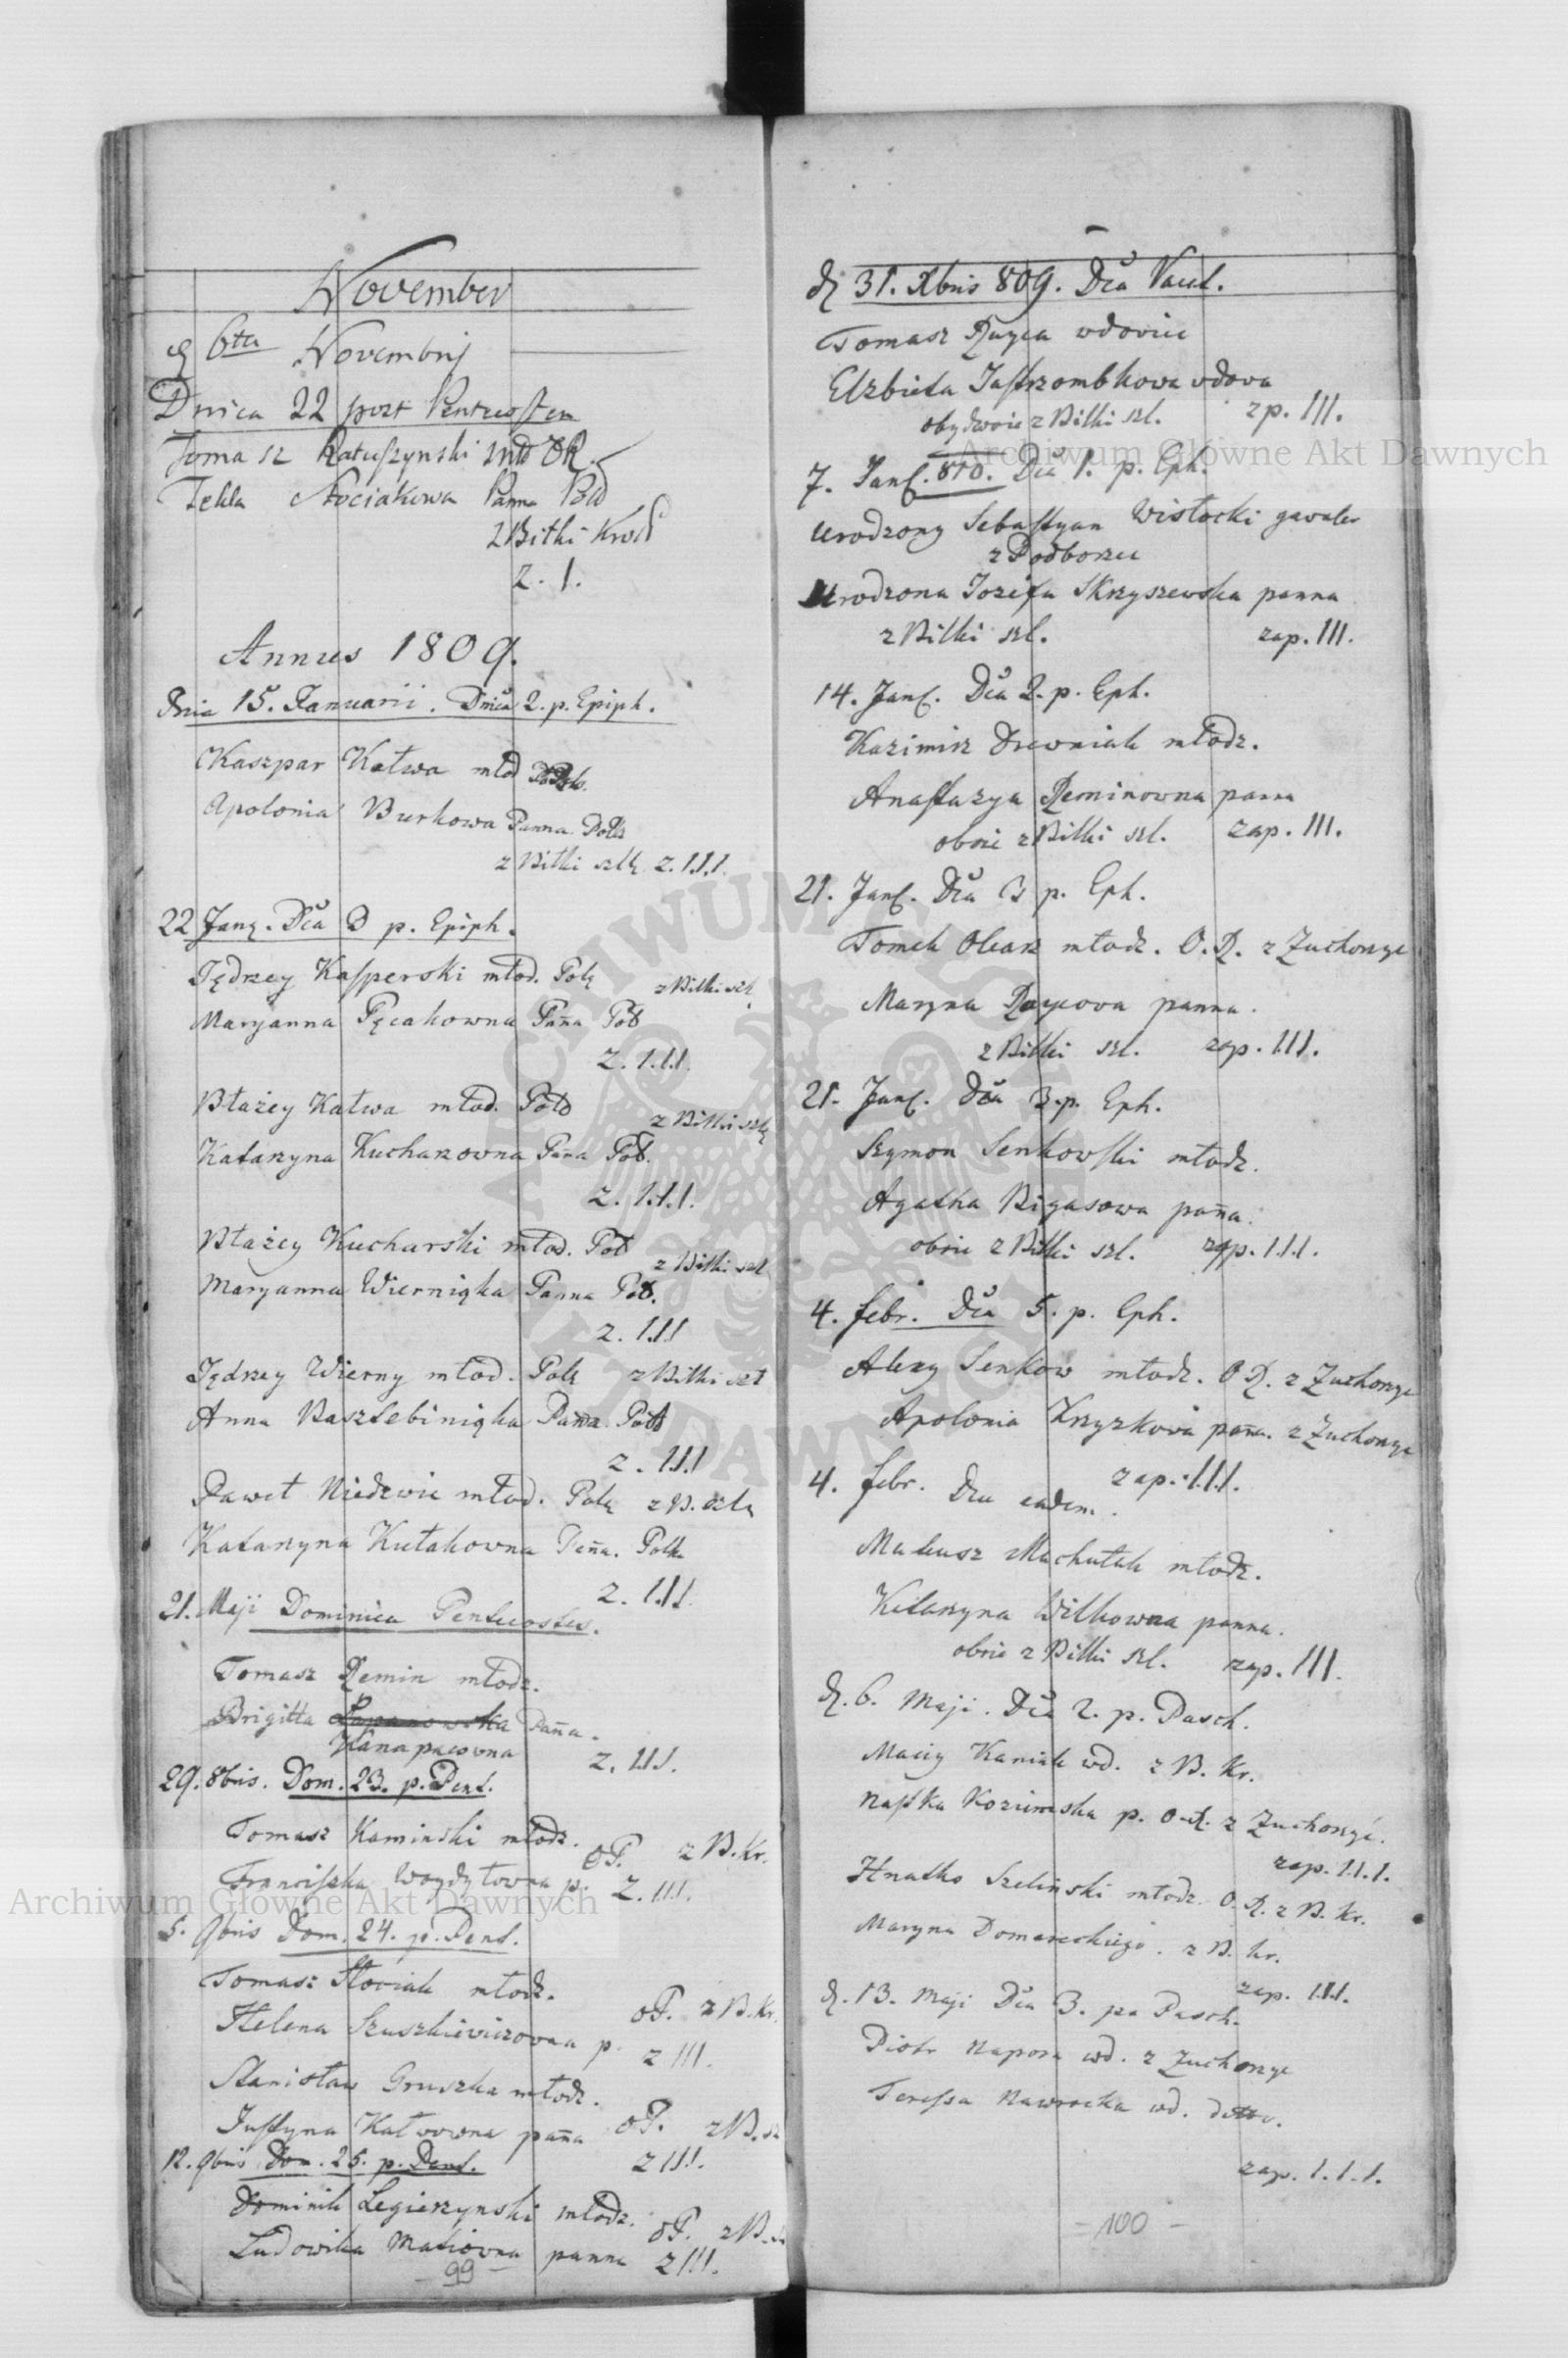 November
6ta Novembrij
Dnica 22 post Pentecosten
Tomasz Ratuszynski młd OR.
Tekla Stociakowa Panna Pol
z Bilki Krol
Z. I.
Annus 1809.
Dnia 15. Januarii. Dnica 2. p. Epiph.
Kaszpar Katwa młod
Apolonia Burkowa Panna Polk
z Bilki szlę z. I.I.I.
22 Jan. Dca 3 p. Epiph.
Jędrzey Kasperski młod. Polę z Bilki szl
Maryanna Pęcakowna Pana Pol
Z. I.I.I.
Błażey Katwa młod. Pol z Bilki szlę
Katarzyna Kucharowna Pana Pol.
Z. I.I.I.
Błażey Kucharski młod. Pol z Bilki szl
Maryanna Wiernięka Panna Pol.
z. I.I.I
Jędrzey Wierny młod. Polę z Bilki szl
Anna Baszlebinięka Panna Pol
z. I.I.I
Paweł Niedzwie młod. Polę z B. szla
Katarzyna Kutakowna Pana. Polka
z. I.I.I.
21. Maji Dominica Pentecostes.
Tomasz Demin młodz.
Brigitta Panna.
Kanapacowna z. I.I.I.
29. 8bris. Dom. 23. p. Pent.
Tomasz Kaminski młodz. oP. z B. Kr.
Franciszka Woydytowna p. Z. I.I.I.
5. 9bris Dom. 24. p. Pent.
Tomasz Stociak młodz. oP. z B. Kr.
Helena Szuszkiewiczowna p. z III.
Stanisław Gruszka młodz.
Justyna Katwowna pana oP. z B. sz
12. 9bris Dom. 25. p. Pent. z I.I.I.
Dominik Legierzynski młodz. oP. z B.
Ludowika Matiowna panna z III.
- 99 -
d 31. Xbris 809. Dca Vacat.
Tomasz Rayca wdowiec
Elzbieta Jastrzombkowa wdowa
obydwoie z Bilki szl. zp. III.
7. Jan. 810. Dca 1. p. Eph.
Urodzony Sebastyan Wisłocki gawaler
z Podborzec
Urodzona Jozefa Skrzyszewska panna
z Bilki szl. zap. III.
14. Jan. Dca 2. p. Eph.
Kazimirz Drewniak młodz.
Anastazya Deminowna panna
oboie z Bilki szl. zap. III.
21. Jan. Dca 3 p. Eph.
Tomek Olearz młodz. O. R. z Zuchorzyc
Maryna Raycowa panna.
z Bilki szl. zap. I.I.I.
21. Jan. Dca 3. p. Eph.
Szymon Senkowski młodz.
Agatha Bigasowa pana.
oboie z Bilki szl. zap. I.I.I.
4. febr. Dca 5. p. Eph.
Alexy Senkow młodz. O R. z Zuchorzyc
Apolonia Krzyzkowa pana. z Zuchorzyc
zap. I.I.I.
4. febr. Dca eadem.
Mateusz Machutak młodz.
Katarzyna Wilkowna panna.
oboie z Bilki szl. zap. III.
d. 6. Maji. Dca 2. p. Pasch.
Maciy Kaniak wd. z B. Kr.
Nastka Koziemska p. O.R. z Zuchorzyc.
zap. I.I.I.
Hnatko Szeliński młodz. O. R. z B. Kr.
Maryna Domareckiego. z B. kr.
zap. I.I.I.
d. 13. Maji Dca 3. po Pasch.
Piotr Napora wd. z Zuchorzyc
Teressa Nawrocka wd. detto.
zap. I.I.I.
- 100 -
Archiwum Główne Akt Dawnych
Archiwum Główne Akt Dawnych
ARCHIWUM GŁÓWNE AKT DAWNYCH